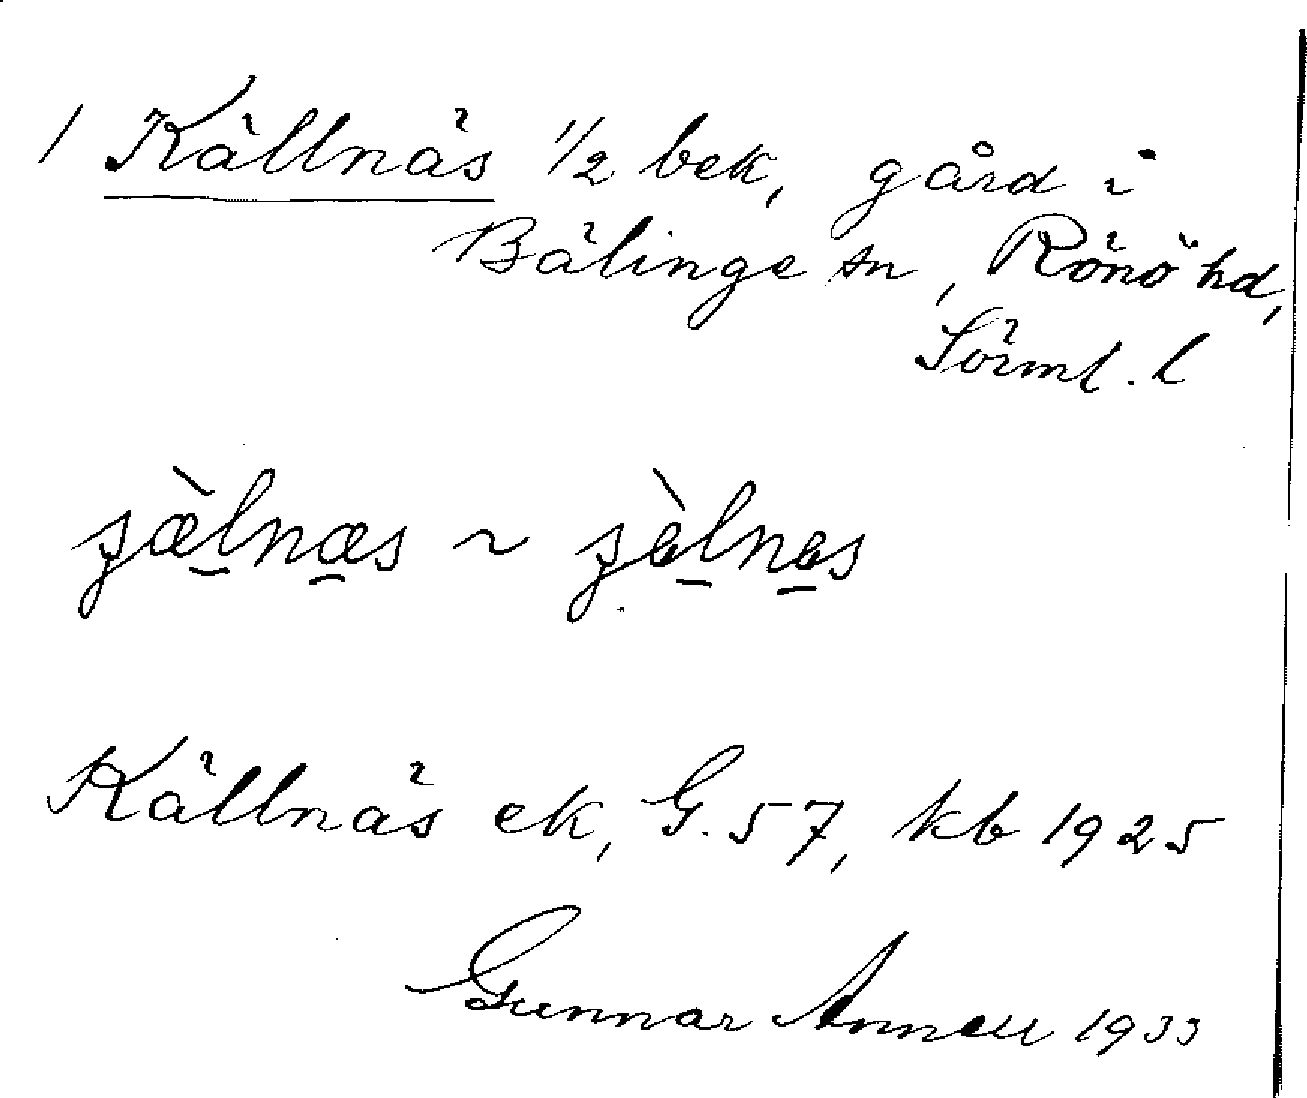 1 Källnäs 1/2 bek, gård i
Bälinge sn, Rönö hd,
Sörml. l
Källnäs ek, G. 57, kb 1925
Gunnar Annell 1933